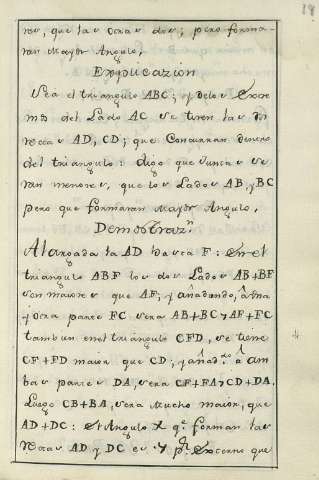 18
res, que las otras dos; pero forma-
ran Mayor Angulo.
Explicazion
Sea el triangulo ABC; y delos Extre
mos del Lado AC se tiren las di
rectas AD, CD; que Concurran dentro
del triangulo: digo que Juntas se
ran menores, que los Lados AB, y BC
pero que formaran Mayor Angulo.
Demostraz.n
Alargada la AD hasta F: En el
triangulo ABF los dos Lados AB+BF
son maiores que AF; y añadiendo, â una
y otra parte FC sera AB+BC > AF+FC
tambien enel triangulo CFD, se tiene
CF+FD maior que CD; y añad.do â am
bas partes DA, sera CF+FA > CD+DA.
Luego CB+BA, sera Mucho maior, que
AD+DC: el Angulo X q.e forman las
rectas AD y DC es > p.r Externo que